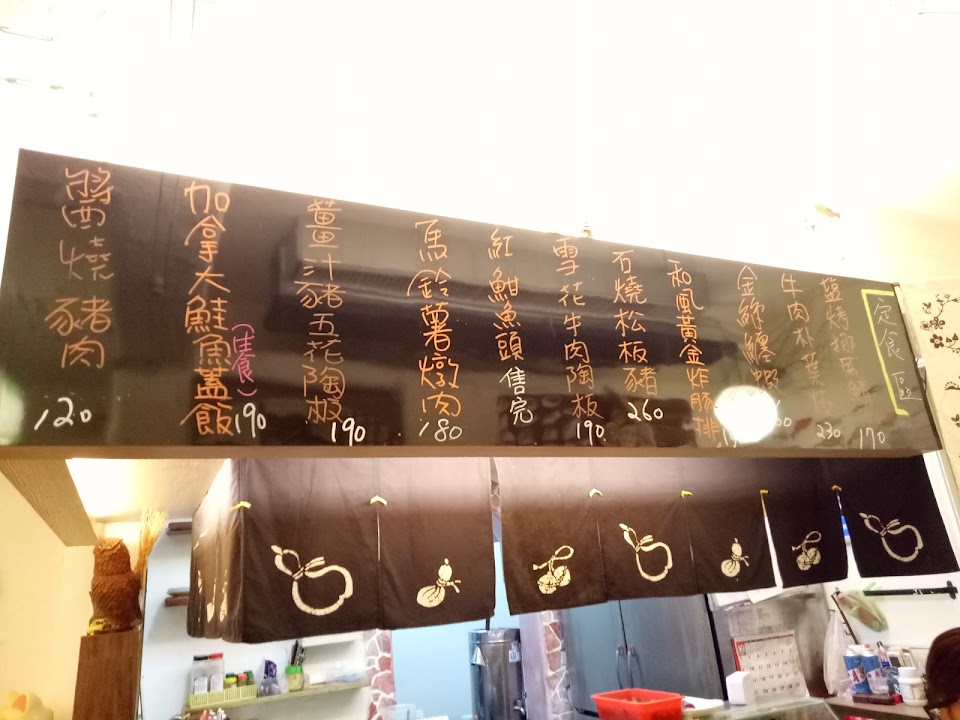 定食區
鹽烤挪威
170
牛肉朴葉
230
金絲纏蝦
和風黃金炸豚排
石燒松板豬
260
雪花牛肉陶板
190
紅魽魚頭 售完
馬鈴薯燉肉
180
薑汁豬五花陶板
190
加拿大鮭魚蓋飯
(生食)
190
醬燒豬肉
120